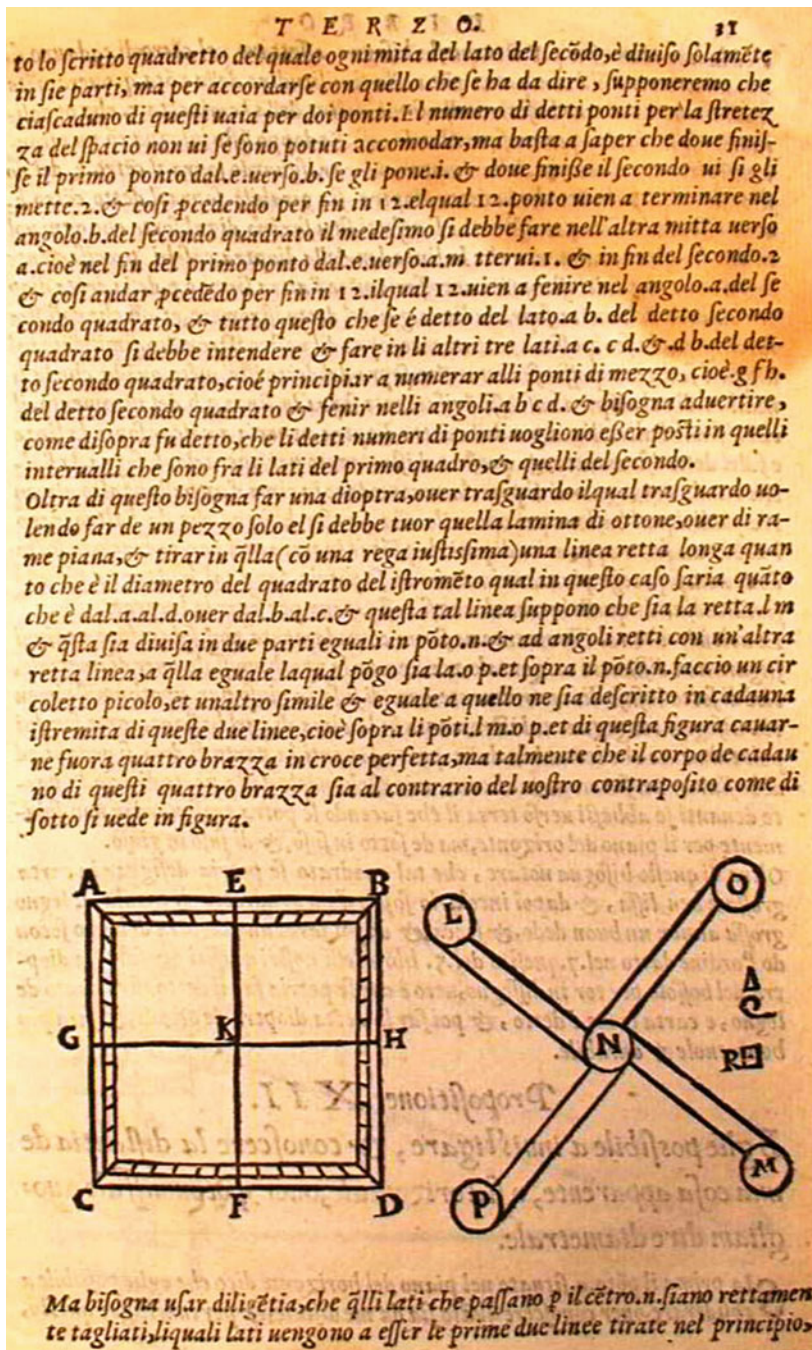 TERZO. 31
to lo ſcritto quadretto del quale ogni mita del lato del ſecõdo, è diuiſo ſolamẽte
in ſie parti, ma per accordarſe con quello che ſe ha da dire, ſupponeremo che
ciaſcaduno di queſti uaia per doi ponti. El numero di detti ponti per la ſtretez
za del ſpacio non ui ſe ſono potuti accomodar, ma baſta a ſaper che doue finiſ-
ſe il primo ponto dal.e.uerſo.b.ſe gli pone.i.& doue finiße il ſecondo ui ſi gli
mette.2.& coſi ꝓcedendo per fin in 12.elqual 12.ponto uien a terminare nel
angolo.b.del ſecondo quadrato il medeſimo ſi debbe fare nell'altra mitta uerſo
a.cioè nel fin del primo ponto dal.e.uerſo.a.m tterui.1. & in fin del ſecondo.2
& coſi andar ꝓcedẽdo per fin in 12.ilqual 12.uien a fenire nel angolo.a.del ſe
condo quadrato, & tutto queſto che ſe é detto del lato.a b. del detto ſecondo
quadrato ſi debbe intendere & fare in li altri tre lati.a c. c d.&.d b.del det-
to ſecondo quadrato, cioé principiar a numerar alli ponti di mezzo, cioè.g f h.
del detto ſecondo quadrato & fenir nelli angoli.a b c d. & biſogna aduertire,
come diſopra fu detto, che li detti numeri di ponti uogliono eßer poſti in quelli
interualli che ſono fra li lati del primo quadro, & quelli del ſecondo.
Oltra di queſto biſogna far una dioptra, ouer traſguardo ilqual traſguardo uo-
lendo far de un pezzo ſolo el ſi debbe tuor quella lamina di ottone, ouer di ra-
me piana, & tirar in q̃lla (cõ una rega iuſtiſſima) una linea retta longa quan
to che è il diametro del quadrato del iſtromẽto qual in queſto caſo ſaria quãto
che è dal.a.al.d.ouer dal.b.al.c.& queſta tal linea ſuppono che ſia la retta.l m
& q̃ſta ſia diuiſa in due parti eguali in põto.n.& ad angoli retti con un'altra
retta linea, a q̃lla eguale laqual põgo ſia la.o p.et ſopra il põto.n.faccio un cir
coletto picolo, et unaltro ſimile & eguale a quello ne ſia deſcritto in cadauna
iſtremita di queſte due linee, cioè ſopra li põti.l m.o p.et di queſta figura cauar-
ne fuora quattro brazza in croce perfetta, ma talmente che il corpo de cadau
no di queſti quattro brazza ſia al contrario del uoſtro contrapoſito come di
ſotto ſi uede in figura.
A E B
G K H
C F D
L O
N
P M
R
Ma biſogna uſar diligẽtia, che q̃lli lati che paſſano p il cẽtro.n.ſiano rettamen
te tagliati, liquali lati uengono a eſſer le prime due linee tirate nel principio,